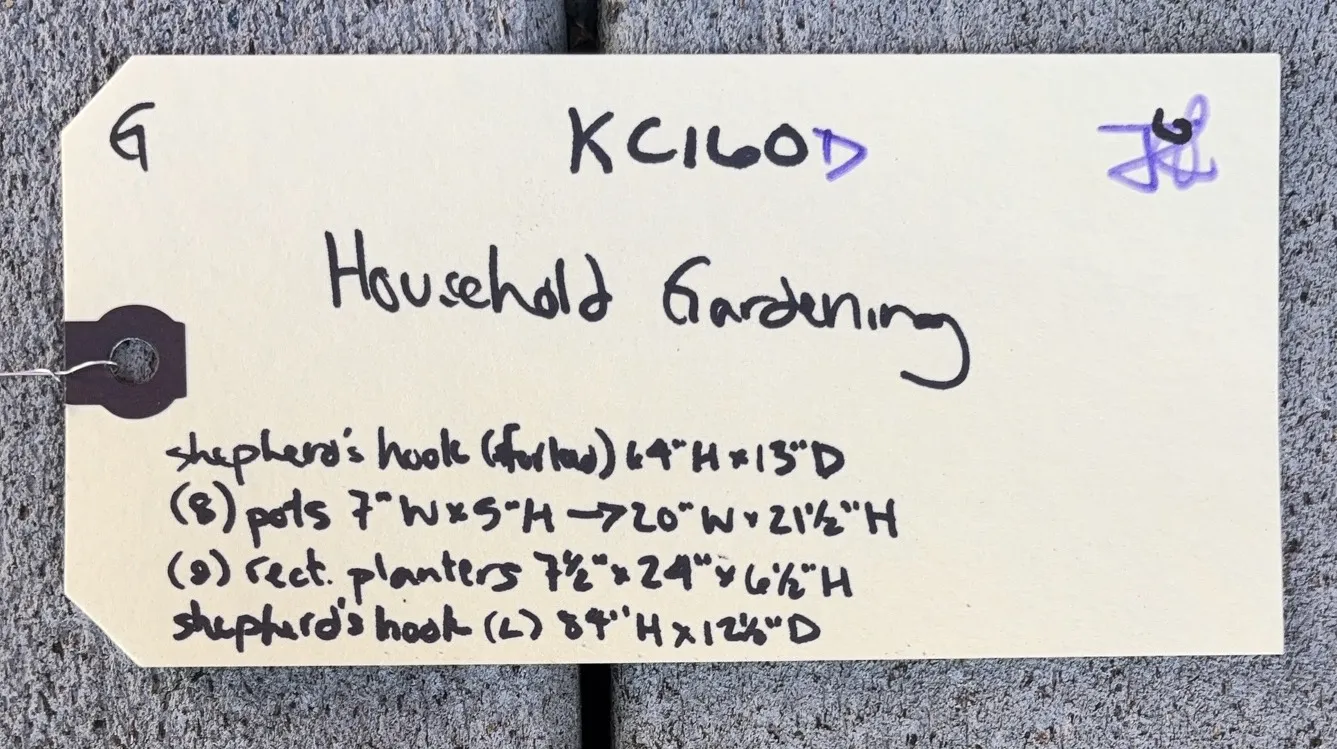 G KC160D
Household Gardening
shepherd's hook (forked) 64"H x 13"D
(8) pots 7"W x 5"H → 20"W x 21½"H
rect. planters 7½" x 24" x 6½"H
shepherd's hook (L) 84"H x 12½"D